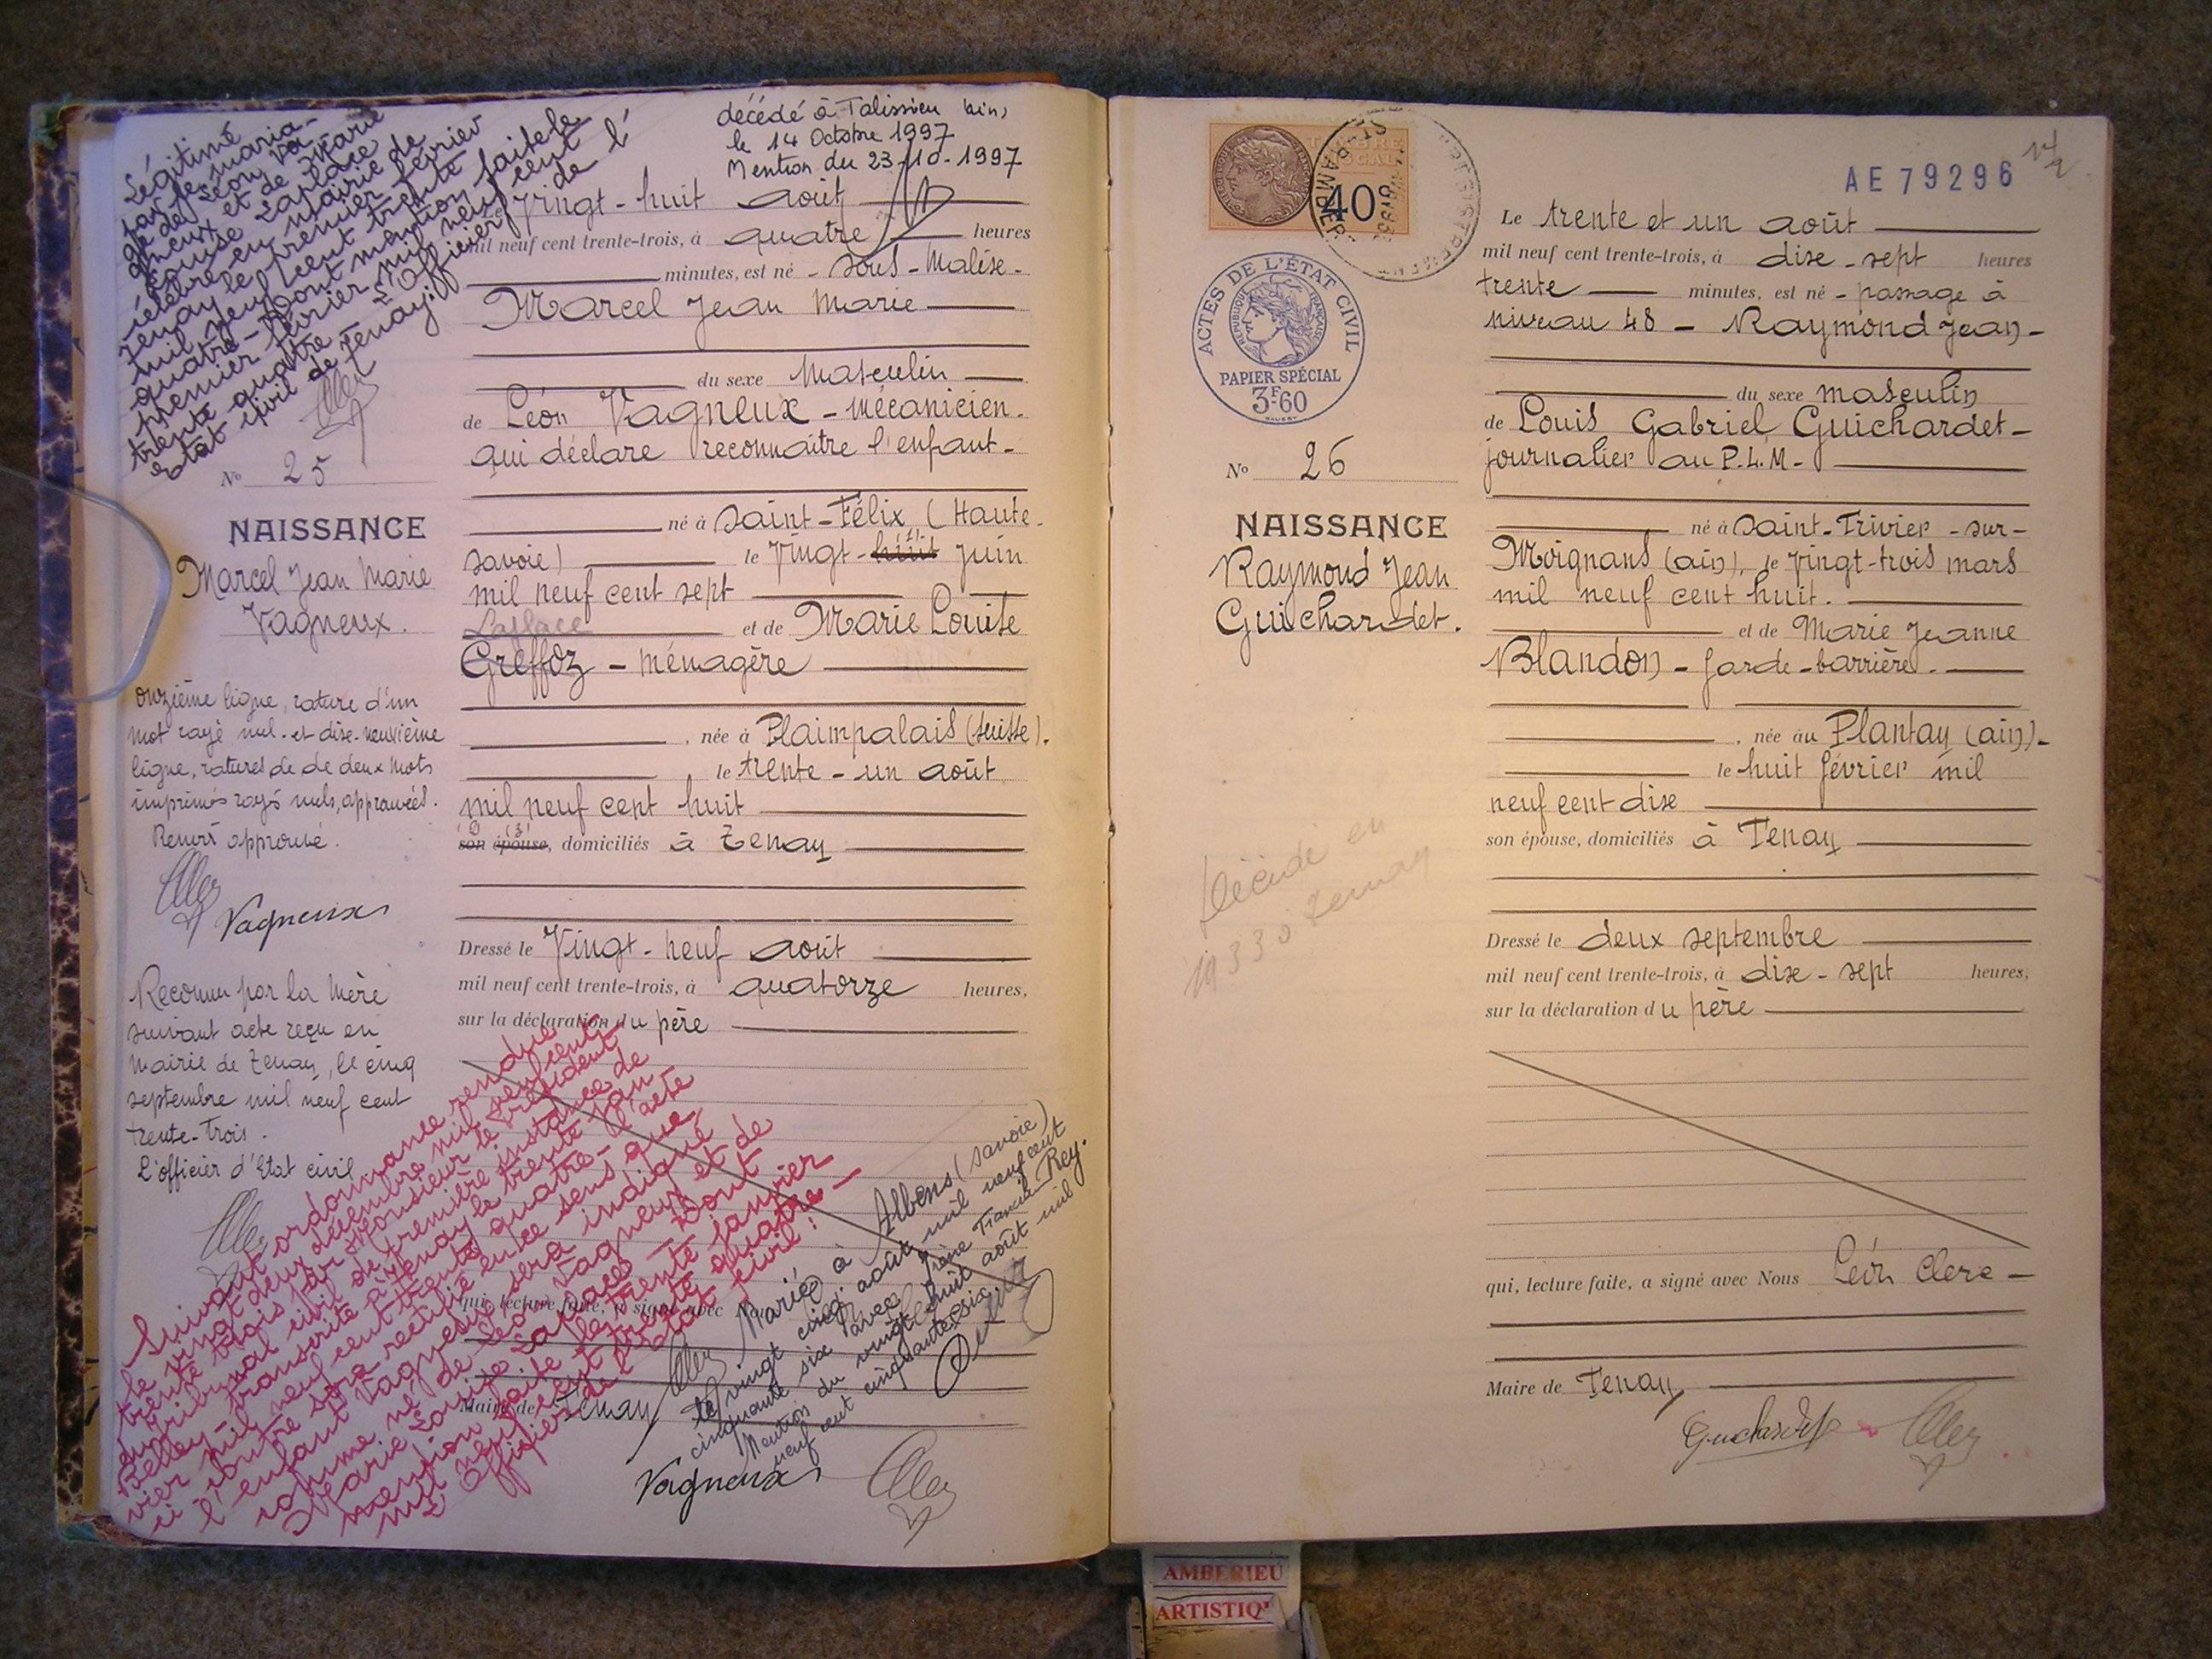 Légitimé
par le maria-
ge de Léon Va-
gneux et de Marie
Louise Laplace
célébré en mairie de
Tenay le premier février
mil neuf cent trente
quatre - Dont mention faite le
premier février mil neuf cent
trente quatre - L'Officier de l'
Etat civil de Tenay.
décédé à Talissieu (Ain)
le 14 Octobre 1997
Mention du 23-10-1997
Nº 25
NAISSANCE
Marcel Jean Marie
Vagneux.
onzième ligne, rature d'un
mot rayé nul - et dix-neuvième
ligne, ratures de de deux mots
imprimés rayés nuls, approuvées.
Renvoi approuvé.
Vagneux
Reconnu par la mère
suivant acte reçu en
mairie de Tenay, le cinq
septembre mil neuf cent
trente-trois.
L'officier d'Etat civil
Le Vingt-huit août
mil neuf cent trente-trois, à quatre heures
minutes, est né - sous-Malèse -
Marcel Jean Marie
du sexe Masculin
de Léon Vagneux - mécanicien -
qui déclare reconnaître l'enfant -
né à Saint-Félix (Haute-
Savoie) le Vingt-huit juin
mil neuf cent sept
Laplace et de Marie Louise
Greffoz - ménagère
, née à Plaimpalais (Suisse).
le trente-un août
mil neuf cent huit
son épouse, domiciliés à Tenay
Dressé le Vingt-neuf août
mil neuf cent trente-trois, à quatorze heures,
sur la déclaration du père
qui, lecture faite, a signé avec
Maire de Tenay
Vagneux
Suivant ordonnance rendue
le vingt deux décembre mil neuf cent
trente trois par Monsieur le Président
du Tribunal civil de première instance de
Belley - transcrite à Tenay le trente jan-
vier mil neuf cent trente quatre - l'acte
ci contre sera rectifié en ce sens que
l'enfant Vagneux sera indiqué
comme né de Léon Vagneux et de
Marie Louise Laplace - Dont
mention faite le trente janvier
mil neuf cent trente quatre -
L'Officier de l'Etat civil:
Marié à Albens (Savoie)
le vingt cinq août mil neuf cent
cinquante six avec Irène Francine Rey.
Mention du vingt huit août mil
neuf cent cinquante six.
TIMBRE
FISCAL
40
ACTES DE L'ÉTAT CIVIL
RÉPUBLIQUE FRANÇAISE
PAPIER SPÉCIAL
3F60
AE 79296
Nº 26
NAISSANCE
Raymond Jean
Guichardet.
Décédé en
1933 à Tenay
Le trente et un août
mil neuf cent trente-trois, à dix-sept heures
trente minutes, est né - passage à
niveau 48 - Raymond Jean -
du sexe masculin
de Louis Gabriel Guichardet -
journalier au P.L.M. -
né à Saint-Trivier-sur-
Moignans (ain), le Vingt-trois mars
mil neuf cent huit.
et de Marie Jeanne
Blandon - garde-barrière. -
, née au Plantay (ain) -
le huit février mil
neuf cent dix
son épouse, domiciliés à Tenay
Dressé le deux septembre
mil neuf cent trente-trois, à dix-sept heures,
sur la déclaration du père
qui, lecture faite, a signé avec Nous Léon Clerc -
Maire de Tenay
Guichardet
AMBERIEU
ARTISTIQ'